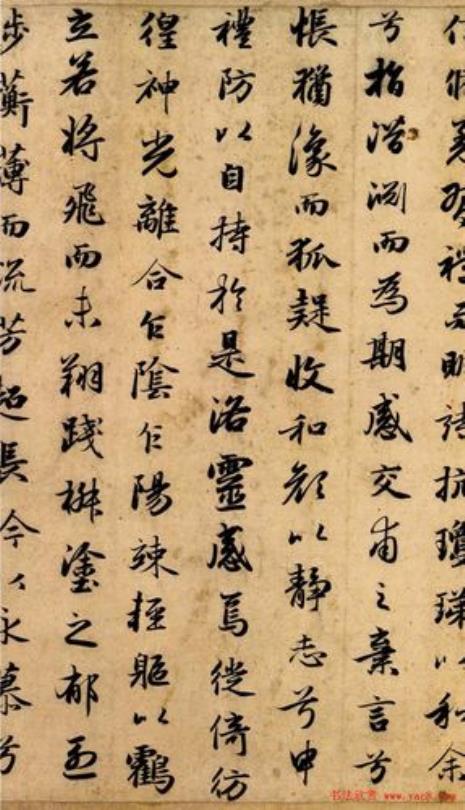 信修羌習禮而明詩抗瓊珶以和余
兮指潛淵而為期感交甫之棄言兮
悵猶豫而狐疑收和顏以靜志兮申
禮防以自持於是洛靈感焉徙倚彷
徨神光離合乍陰乍陽竦輕軀以鶴
立若將飛而未翔踐椒塗之郁烈
步蘅薄而流芳超長吟以永慕兮
书法欣赏 www.yac8.com